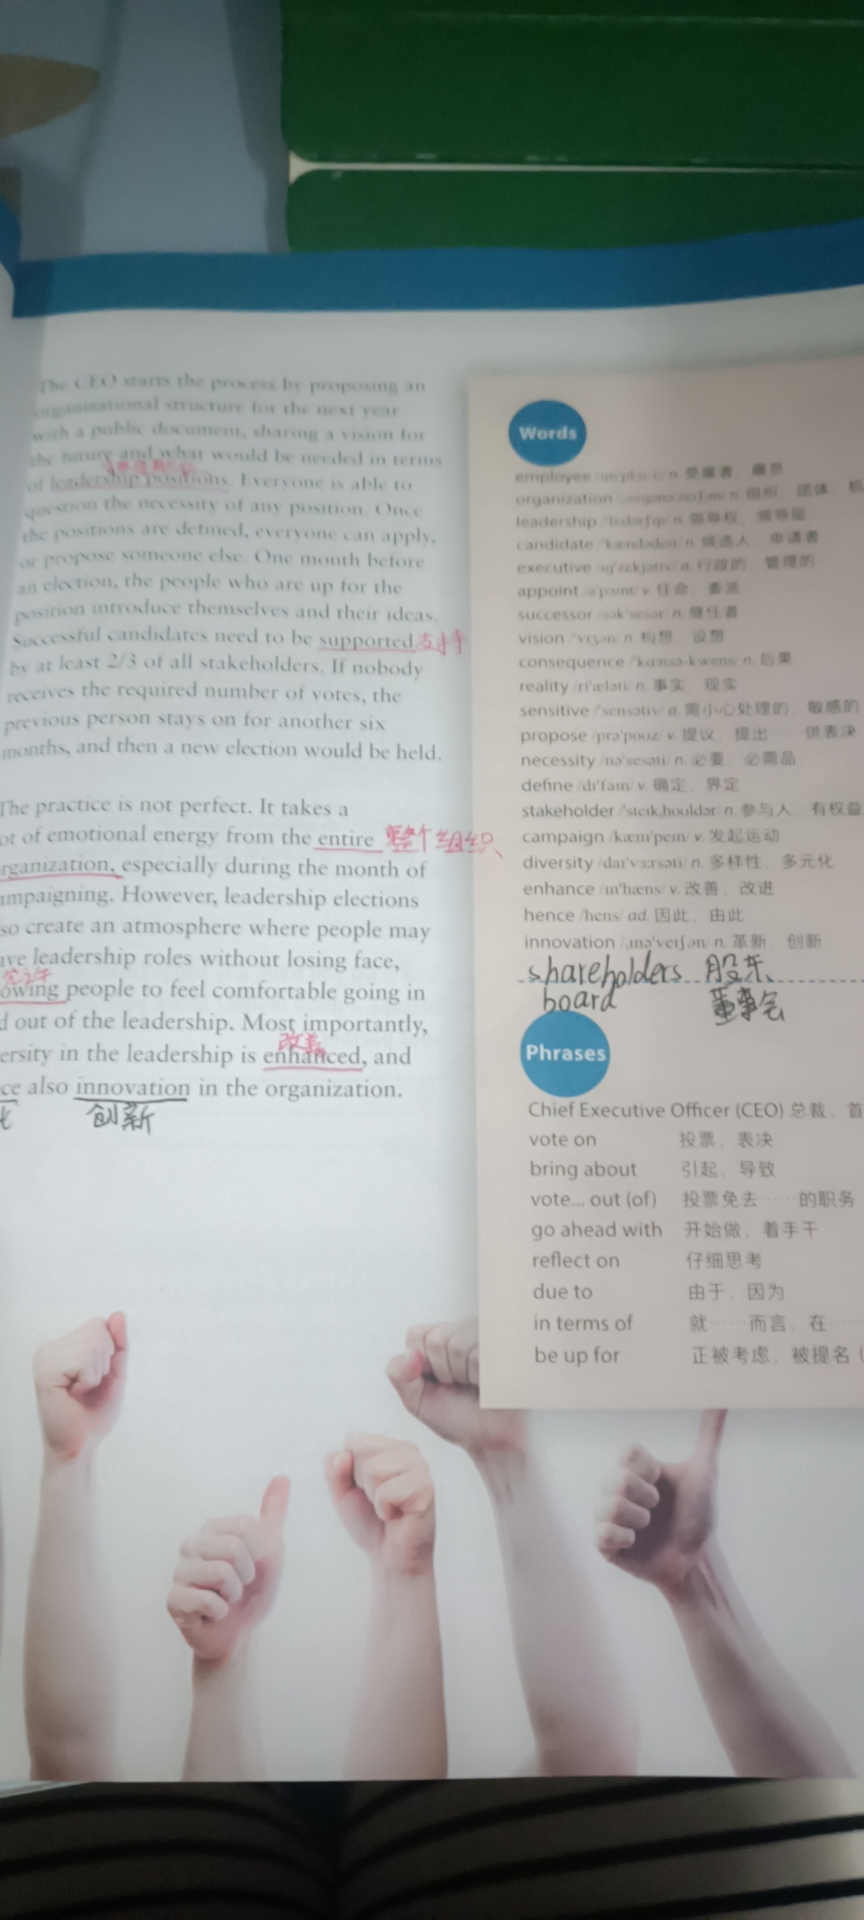 The CEO starts the process by proposing an
organizational structure for the next year
with a public document, sharing a vision for
the future and what would be needed in terms
of leadership positions. Everyone is able to
question the necessity of any position. Once
the positions are defined, everyone can apply,
or propose someone else. One month before
an election, the people who are up for the
position introduce themselves and their ideas.
Successful candidates need to be supported 支持
by at least 2/3 of all stakeholders. If nobody
receives the required number of votes, the
previous person stays on for another six
months, and then a new election would be held.
The practice is not perfect. It takes a
ot of emotional energy from the entire 整个组织
rganization, especially during the month of
mpaigning. However, leadership elections
so create an atmosphere where people may
ave leadership roles without losing face,
owing people to feel comfortable going in
d out of the leadership. Most importantly,
改善
ersity in the leadership is enhanced, and
ce also innovation in the organization.
创新
Words
employee n. 受雇者, 雇员
organization n. 组织, 团体, 机
leadership n. 领导权, 领导层
candidate n. 候选人, 申请者
executive a. 行政的, 管理的
appoint /ə'pɔint/ v. 任命, 委派
successor /sək'sesər/ n. 继任者
vision /'vɪʒən/ n. 构想, 设想
consequence n. 后果
reality /ri'æləti/ n. 事实, 现实
sensitive /'sensətɪv/ a. 需小心处理的, 敏感的
propose /prə'pouz/ v. 提议, 提出……供表决
necessity /nə'sesəti/ n. 必要, 必需品
define /dɪ'faɪn/ v. 确定, 界定
stakeholder /'steɪk,houldər/ n. 参与人, 有权益
campaign /kæm'peɪn/ v. 发起运动
diversity /daɪ'vɜːrsəti/ n. 多样性, 多元化
enhance /ɪn'hæns/ v. 改善, 改进
hence /hens/ ad. 因此, 由此
innovation /,ɪnə'veɪʃən/ n. 革新, 创新
shareholders 股东
board 董事会
Phrases
Chief Executive Officer (CEO) 总裁, 首
vote on 投票, 表决
bring about 引起, 导致
vote... out (of) 投票免去……的职务
go ahead with 开始做, 着手干
reflect on 仔细思考
due to 由于, 因为
in terms of 就……而言, 在……
be up for 正被考虑, 被提名 (